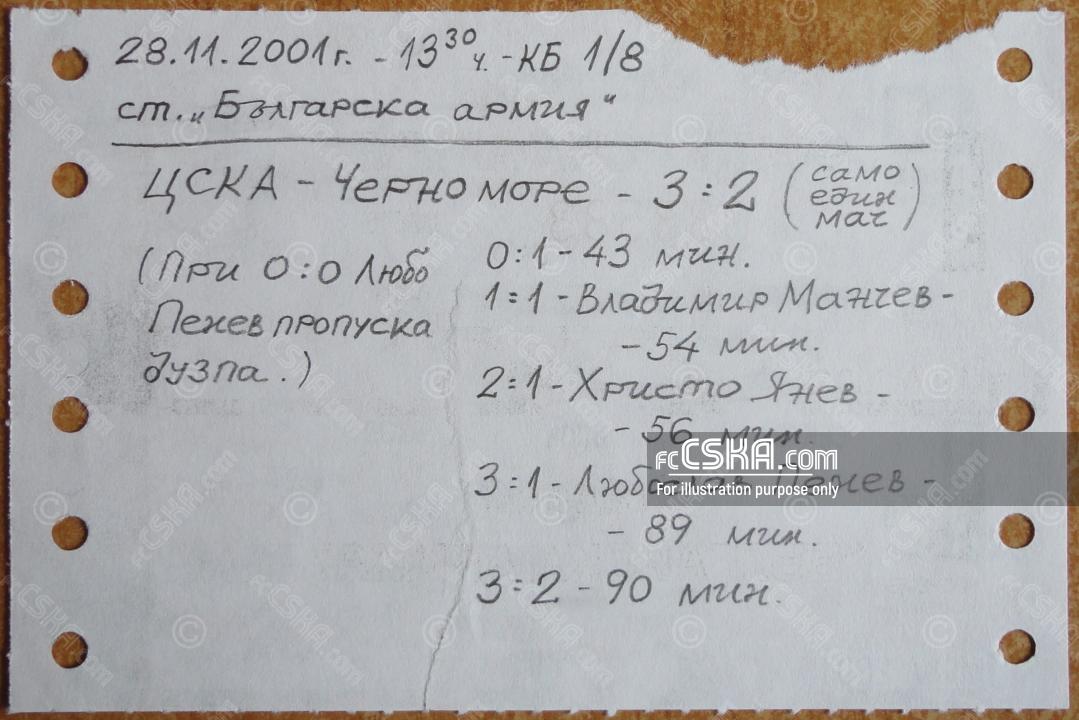 28.11.2001г. - 13³⁰ ч. - КБ 1/8
ст. „Българска армия“
ЦСКА - Черно море - 3:2 (само един мач)
(При 0:0 Любо
Пенев пропуска
дузпа.)
0:1 - 43 мин.
1:1 - Владимир Манчев -
- 54 мин.
2:1 - Христо Янев -
- 56 мин.
3:1 - Любослав Пенев -
- 89 мин.
3:2 - 90 мин.
fcCSKA.com
For illustration purpose only